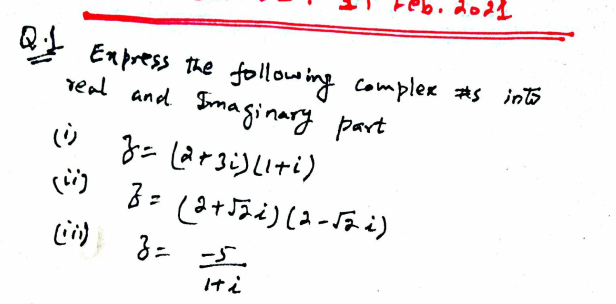 Feb. 2021
Q.1 Express the following complex #s into
real and Imaginary part
(i) z = (2+3i)(1+i)
(ii) z = (2+√2i)(2-√2i)
(iii) z = -5
1+i